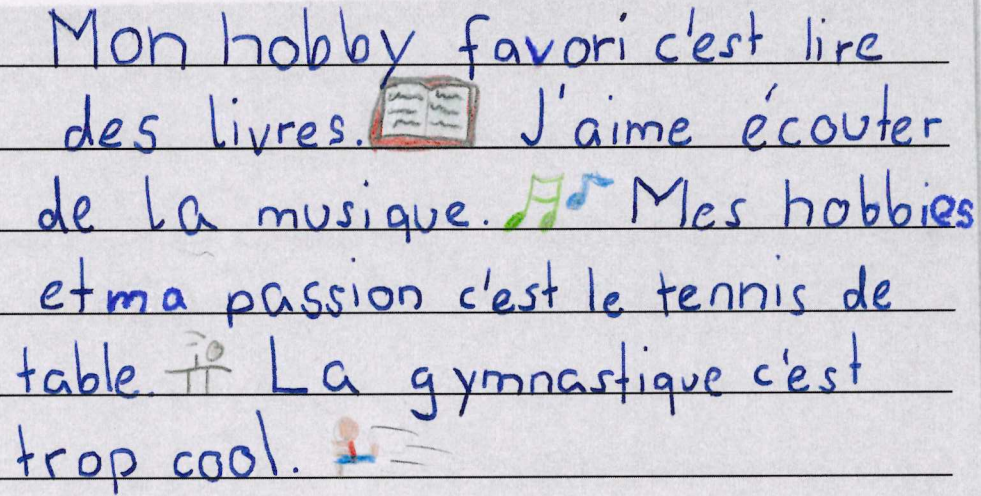 Mon hobby favori c'est lire
des livres. J'aime écouter
de la musique. Mes hobbies
et ma passion c'est le tennis de
table. La gymnastique c'est
trop cool.